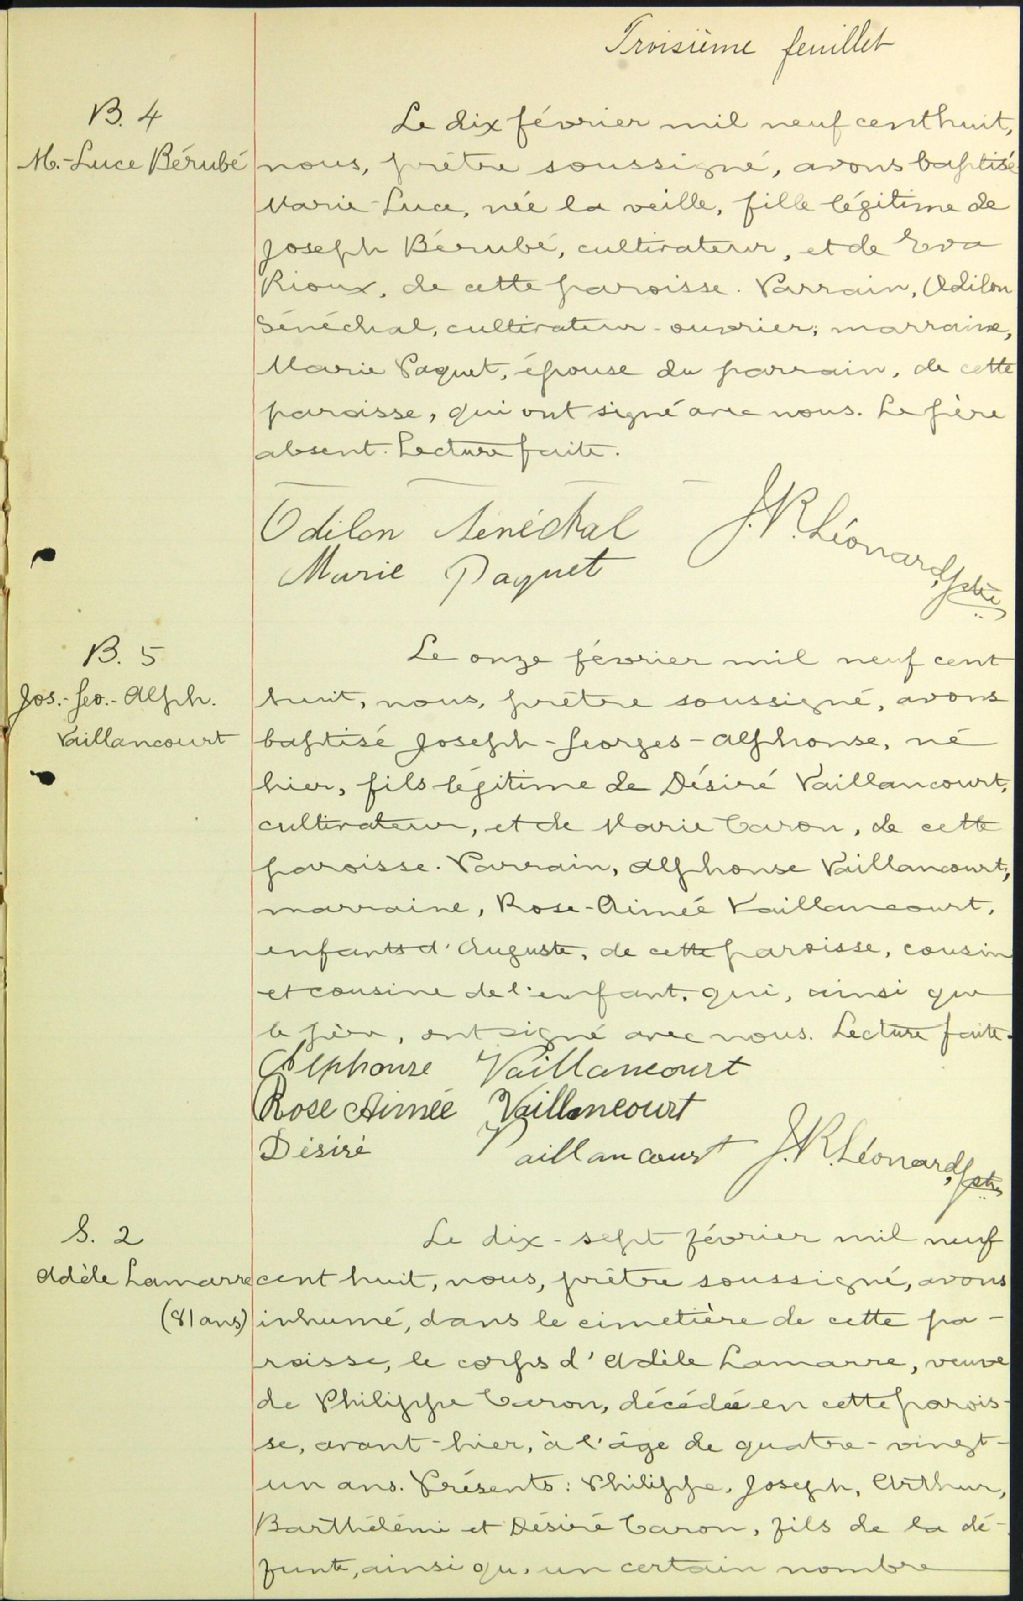 Troisième feuillet
B. 4
M.-Luce Bérubé
Le dix février mil neuf cent huit,
nous, prêtre soussigné, avons baptisé
Marie-Luce, née la veille, fille légitime de
Joseph Bérubé, cultivateur, et de Eva
Rioux, de cette paroisse. Parrain, Odilon
Sénéchal, cultivateur-ouvrier; marraine,
Marie Paquet, épouse du parrain, de cette
paroisse, qui ont signé avec nous. Le père
absent. Lecture faite.
Odilon Sénéchal
Marie Paquet
J. R. Léonard, ptre
B. 5
Jos.-Geo.-Alph.
Vaillancourt
Le onze février mil neuf cent
huit, nous, prêtre soussigné, avons
baptisé Joseph-Georges-Alphonse, né
hier, fils légitime de Désiré Vaillancourt,
cultivateur, et de Marie Caron, de cette
paroisse. Parrain, Alphonse Vaillancourt;
marraine, Rose-Aimée Vaillancourt,
enfants d'Auguste, de cette paroisse, cousin
et cousine de l'enfant, qui, ainsi que
le père, ont signé avec nous. Lecture faite.
Alphonse Vaillancourt
Rose Aimée Vaillancourt
Désiré Vaillancourt
J. R. Léonard, ptre
S. 2
Adèle Lamarre
(81 ans)
Le dix-sept février mil neuf
cent huit, nous, prêtre soussigné, avons
inhumé, dans le cimetière de cette pa-
roisse, le corps d'Adèle Lamarre, veuve
de Philippe Caron, décédée en cette parois-
se, avant-hier, à l'âge de quatre-vingt-
un ans. Présents: Philippe, Joseph, Arthur,
Barthélémi et Désiré Caron, fils de la dé-
funte, ainsi qu'un certain nombre